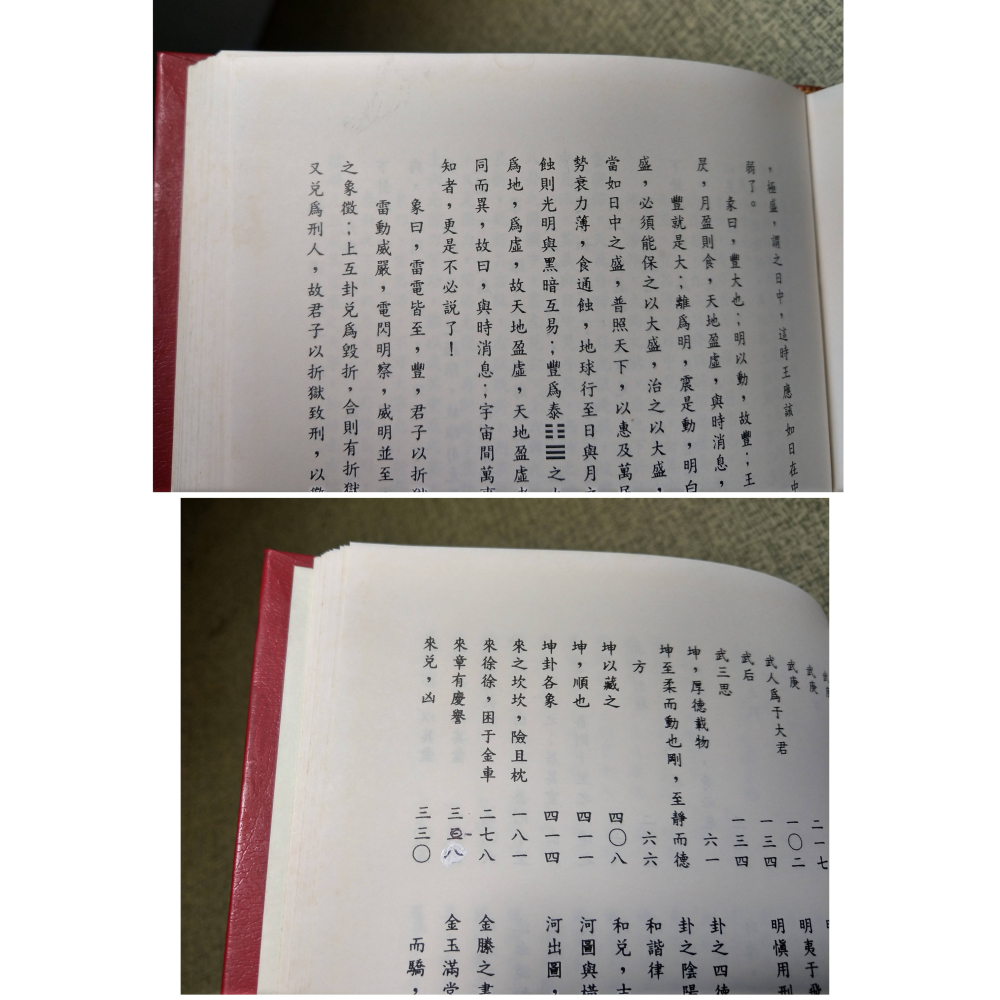 ，極盛，謂之日中，這時王應該如日在中
弱了。
彖曰，豐大也；明以動，故豐；王
昃，月盈則食，天地盈虛，與時消息，
豐就是大；離爲明，震是動，明白
盛，必須能保之以大盛，治之以大盛，
當如日中之盛，普照天下，以惠及萬民
勢衰力薄，食通蝕，地球行至日與月之
蝕則光明與黑暗互易；豐爲泰䷊之
爲地，爲虛，故天地盈虛，天地盈虛
同而異，故曰，與時消息；宇宙間萬事
知者，更是不必説了！
象曰，雷電皆至，豐，君子以折獄
雷動威嚴，電閃明察，威明並至
之象徵；上互卦兑爲毀折，合則有折獄
又兑爲刑人，故君子以折獄致刑，以
武庚 二一七
武庚 一〇二
武人爲于大君 一三四
武后 一三四
武三思 六一
坤，厚德載物
坤至柔而動也剛，至靜而德
方 一六六
坤以藏之 四〇八
坤，順也 四一一
坤卦各象 四一四
來之坎坎，險且枕 一八一
來徐徐，困于金車 二七八
來章有慶譽 三一八
來兑，凶 三三〇
明夷于飛
明慎用刑
卦之四德
卦之陰陽
和諧律
和兑，吉
河圖與橫
河出圖，
金縢之書
金玉滿堂
而驕，